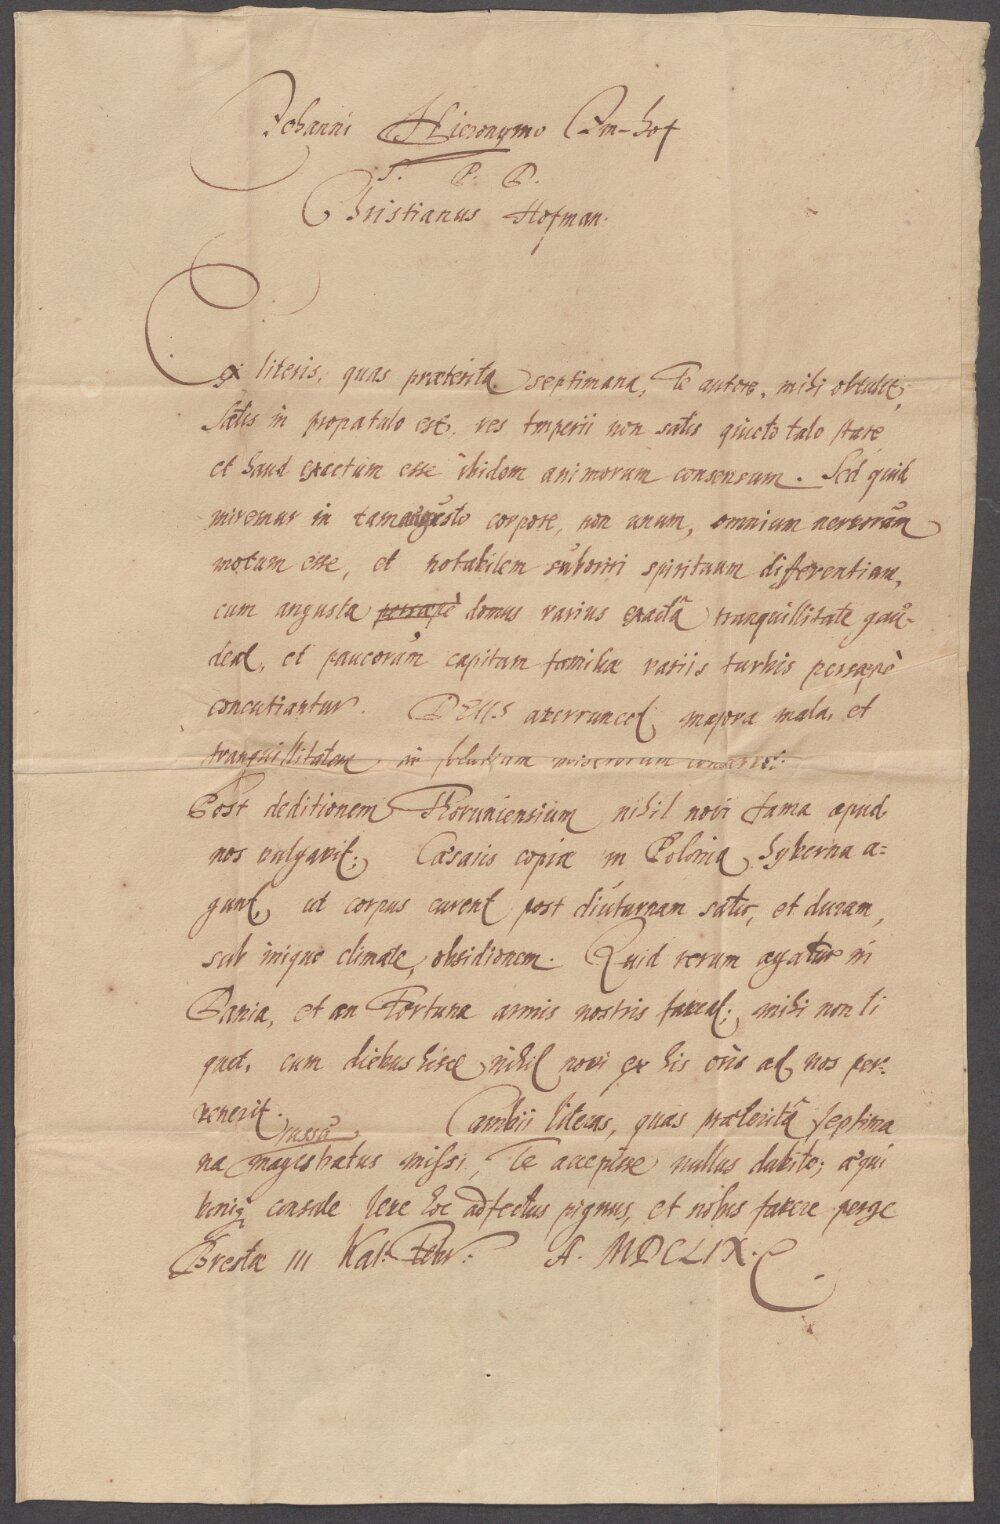 Johanni Hieronymo Im-hof
S. P. D.
Christianus Hofman.
Ex literis, quas præterita septimana, Te autore, mihi obtulit,
satis in propatulo est, res Imperii non satis quieto talo stare
et haud exactum esse ibidem animorum consensum. Sed quid
miremur in tam augusto corpore, non unum, omnium nervorũm
motum esse, et notabilem sũboriri spirituum differentiam,
cum angusta persæpè domus rarius exactâ tranquillitate gaũ-
deat, et paucorũm capitum familiæ variis turbis persæpè
concutiantur. DEUS averruncet majora mala, et
tranquillitatem in solatium miserorum conservet.
Post deditionem Thoruniensium nihil novi fama apud
nos vulgavit; Cæsaris copiæ in Polonia hyberna a=
gunt, ut corpus curent post diũturnam satis, et duram,
sub iniquo climate, obsidionem. Quid rerum agatur in
Dania, et an Fortuna armis nostris faveat; mihi non li
quet, cum diebus hisce nihil novi ex his oris ad nos per=
venerit. Cambii literas, quas præteritâ septima
na jussũ magistratus missi, Te accepisse nullus dubito; æqui
boniq; consule hoc adfectus pignus, et nobis favere perge
Breslæ III Kal. Febr. A. MDCLIX.